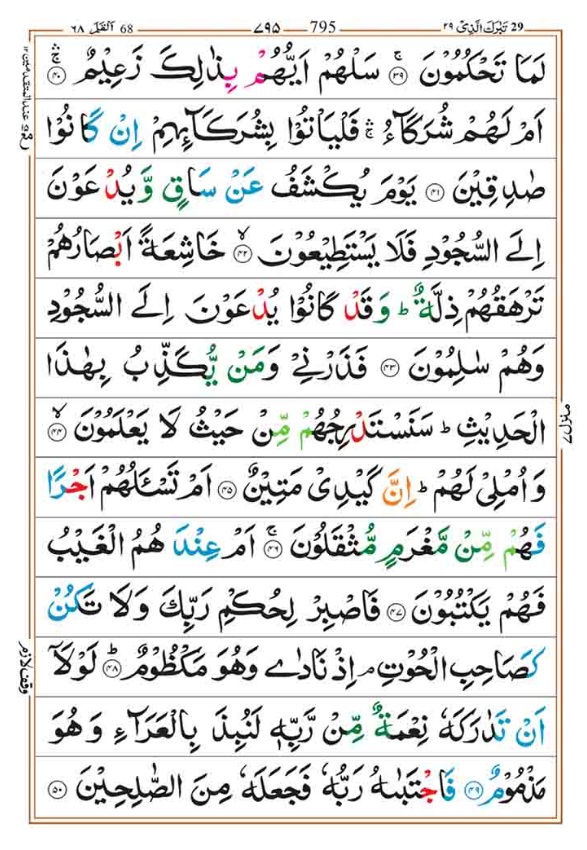 29 تَبٰرَكَ الَّذِىْ ٢٩ 795 ٧٩٥ 68 اَلْقَلَم ٦٨
لَمَا تَحْكُمُوْنَ ۚ‏﴿۳۹﴾ سَلْهُمْ اَيُّهُمْ بِذٰلِكَ زَعِيْمٌ ۚۛ ‏﴿۴۰﴾
اَمْ لَهُمْ شُرَكَآءُ ۛۚ فَلْيَاْتُوْا بِشُرَكَآئِهِمْ اِنْ كَانُوْا
صٰدِقِيْنَ ﴿۴۱﴾ يَوْمَ يُكْشَفُ عَنْ سَاقٍ وَّيُدْعَوْنَ
اِلَى السُّجُوْدِ فَلَا يَسْتَطِيْعُوْنَۙ ﴿۴۲﴾ خَاشِعَةً اَبْصَارُهُمْ
تَرْهَقُهُمْ ذِلَّةٌ ؕ وَقَدْ كَانُوْا يُدْعَوْنَ اِلَى السُّجُوْدِ
وَهُمْ سٰلِمُوْنَ ﴿۴۳﴾ فَذَرْنِىْ وَمَنْ يُّكَذِّبُ بِهٰذَا
الْحَدِيْثِ ؕ سَنَسْتَدْرِجُهُمْ مِّنْ حَيْثُ لَا يَعْلَمُوْنَۙ ﴿۴۴﴾
وَاُمْلِىْ لَهُمْ ؕ اِنَّ كَيْدِىْ مَتِيْنٌ ﴿۴۵﴾ اَمْ تَسْـَٔلُهُمْ اَجْرًا
فَهُمْ مِّنْ مَّغْرَمٍ مُّثْقَلُوْنَۚ ﴿۴۶﴾ اَمْ عِنْدَهُمُ الْغَيْبُ
فَهُمْ يَكْتُبُوْنَ ﴿۴۷﴾ فَاصْبِرْ لِحُكْمِ رَبِّكَ وَلَا تَكُنْ
كَصَاحِبِ الْحُوْتِ ۘ اِذْ نَادٰى وَهُوَ مَكْظُوْمٌؕ ﴿۴۸﴾ لَوْلَاۤ
اَنْ تَدٰرَكَهٗ نِعْمَةٌ مِّنْ رَّبِّهٖ لَنُبِذَ بِالْعَرَآءِ وَهُوَ
مَذْمُوْمٌ ﴿۴۹﴾ فَاجْتَبٰىهُ رَبُّهٗ فَجَعَلَهٗ مِنَ الصّٰلِحِيْنَ ﴿۵۰﴾
منزل ٧
وقف لازم